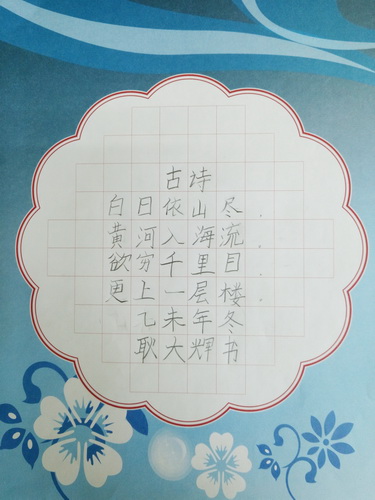 古诗
白日依山尽.
黄河入海流.
欲穷千里目.
更上一层楼.
乙未年冬
耿大辉书